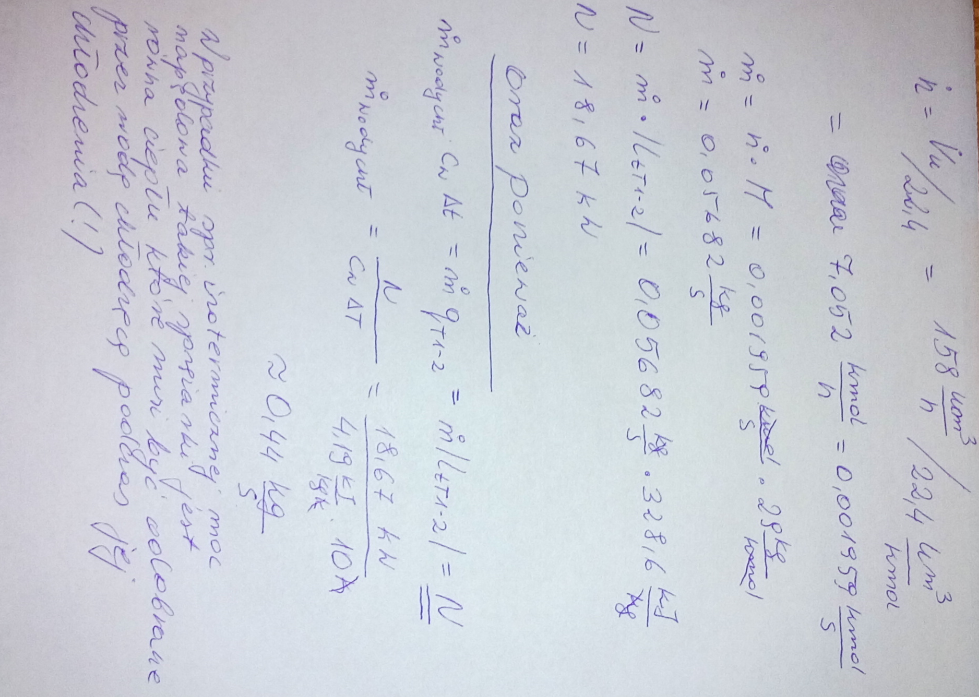 ṅ = V̇u / 22,4 = 158 um³/h / 22,4 um³/kmol
= 7,052 kmol/h = 0,001959 kmol/s
ṁ = ṅ · M = 0,001959 kmol/s · 29 kg/kmol
ṁ = 0,05682 kg/s
N = ṁ · |ltT1-2| = 0,05682 kg/s · 328,6 kJ/kg
N = 18,67 kW
oraz ponieważ
ṁwody chł · cw Δt = ṁ qT1-2 = ṁ |ltT1-2| = N
ṁwody chł = N / cw ΔT = 18,67 kW / 4,19 kJ/kgK · 10K
≈ 0,44 kg/s
W przypadku spr. izotermicznej moc
napędowa takiej sprężarki jest
równa ciepłu które musi być odebrane
przez wodę chłodzącą podczas jej
chłodzenia (!)